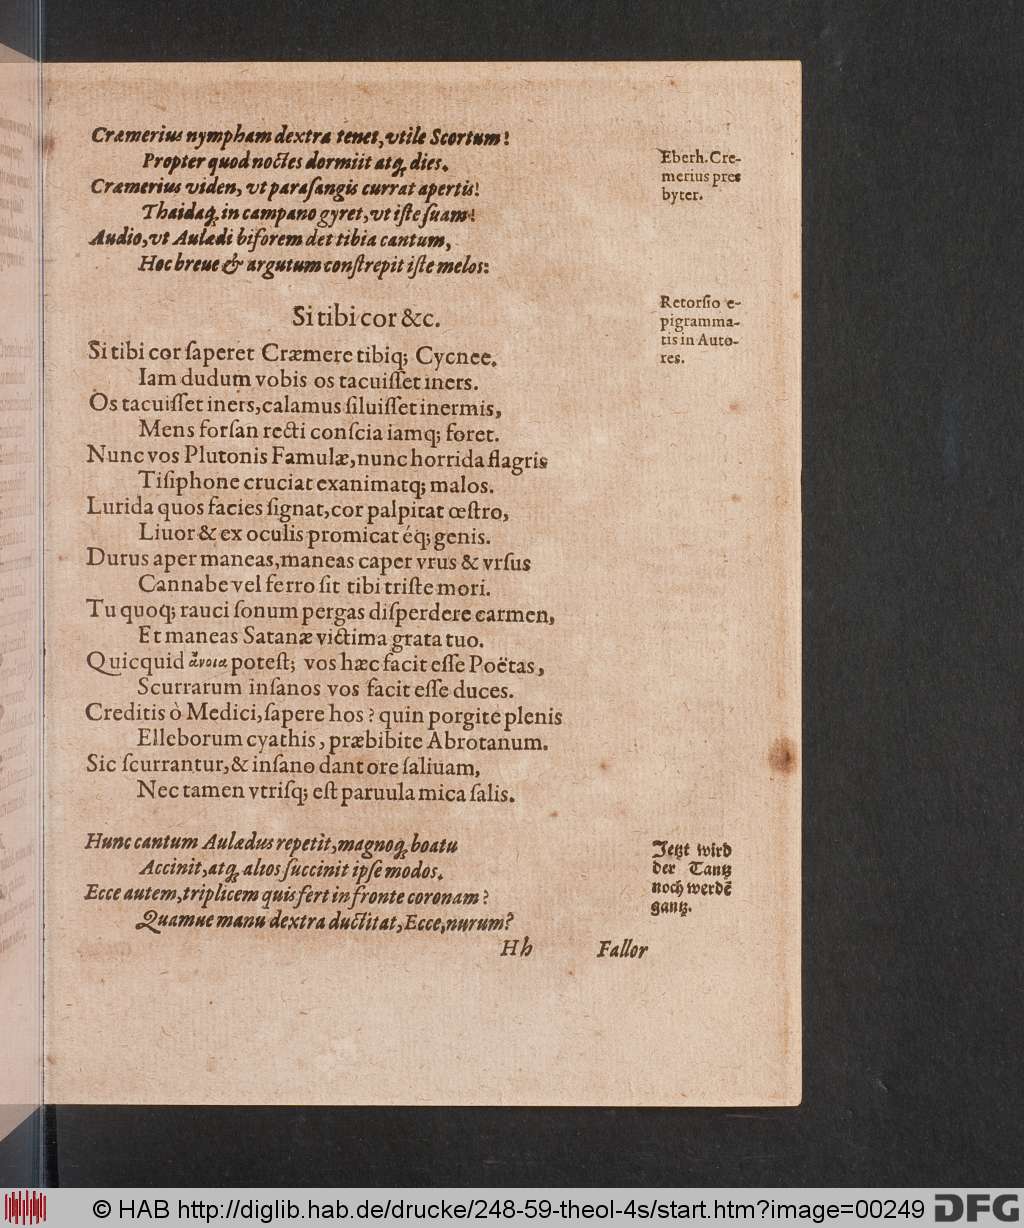 Cræmerius nympham dextra tenet, vtile Scortum!
Propter quod noctes dormiit atq́; dies.
Cræmerius viden, vt paraſangis currat apertis!
Thaidaq́; in campano gyret, vt iſte ſuam!
Audio, vt Aulædi biforem det tibia cantum,
Hoc breue & argutum conſtrepit iſte melos:
Eberh. Cre-
merius pres
byter.
Si tibi cor &c.
Retorſio e-
pigramma-
tis in Auto-
res.
Si tibi cor ſaperet Cræmere tibiq; Cycnee.
Iam dudum vobis os tacuiſſet iners.
Os tacuiſſet iners, calamus ſiluiſſet inermis,
Mens forſan recti conſcia iamq; foret.
Nunc vos Plutonis Famulæ, nunc horrida flagris
Tiſiphone cruciat exanimatq; malos.
Lurida quos facies ſignat, cor palpitat œſtro,
Liuor & ex oculis promicat éq; genis.
Durus aper maneas, maneas caper vrus & vrſus
Cannabe vel ferro ſit tibi triſte mori.
Tu quoq; rauci ſonum pergas diſperdere carmen,
Et maneas Satanæ victima grata tuo.
Quicquid ἄνοια poteſt; vos hæc facit eſſe Poëtas,
Scurrarum inſanos vos facit eſſe duces.
Creditis ò Medici, ſapere hos? quin porgite plenis
Elleborum cyathis, præbibite Abrotanum.
Sic ſcurrantur, & inſano dant ore ſaliuam,
Nec tamen vtriſq; eſt paruula mica ſalis.
Hunc cantum Aulædus repetìt, magnoq́; boatu
Accinit, atq́; altos ſuccinit ipſe modos.
Ecce autem, triplicem quis fert in fronte coronam?
Quamue manu dextra ductitat, Ecce, nurum?
Jetzt wird
der Tantz
noch werdē
gantz.
Hh Fallor
© HAB http://diglib.hab.de/drucke/248-59-theol-4s/start.htm?image=00249 DFG